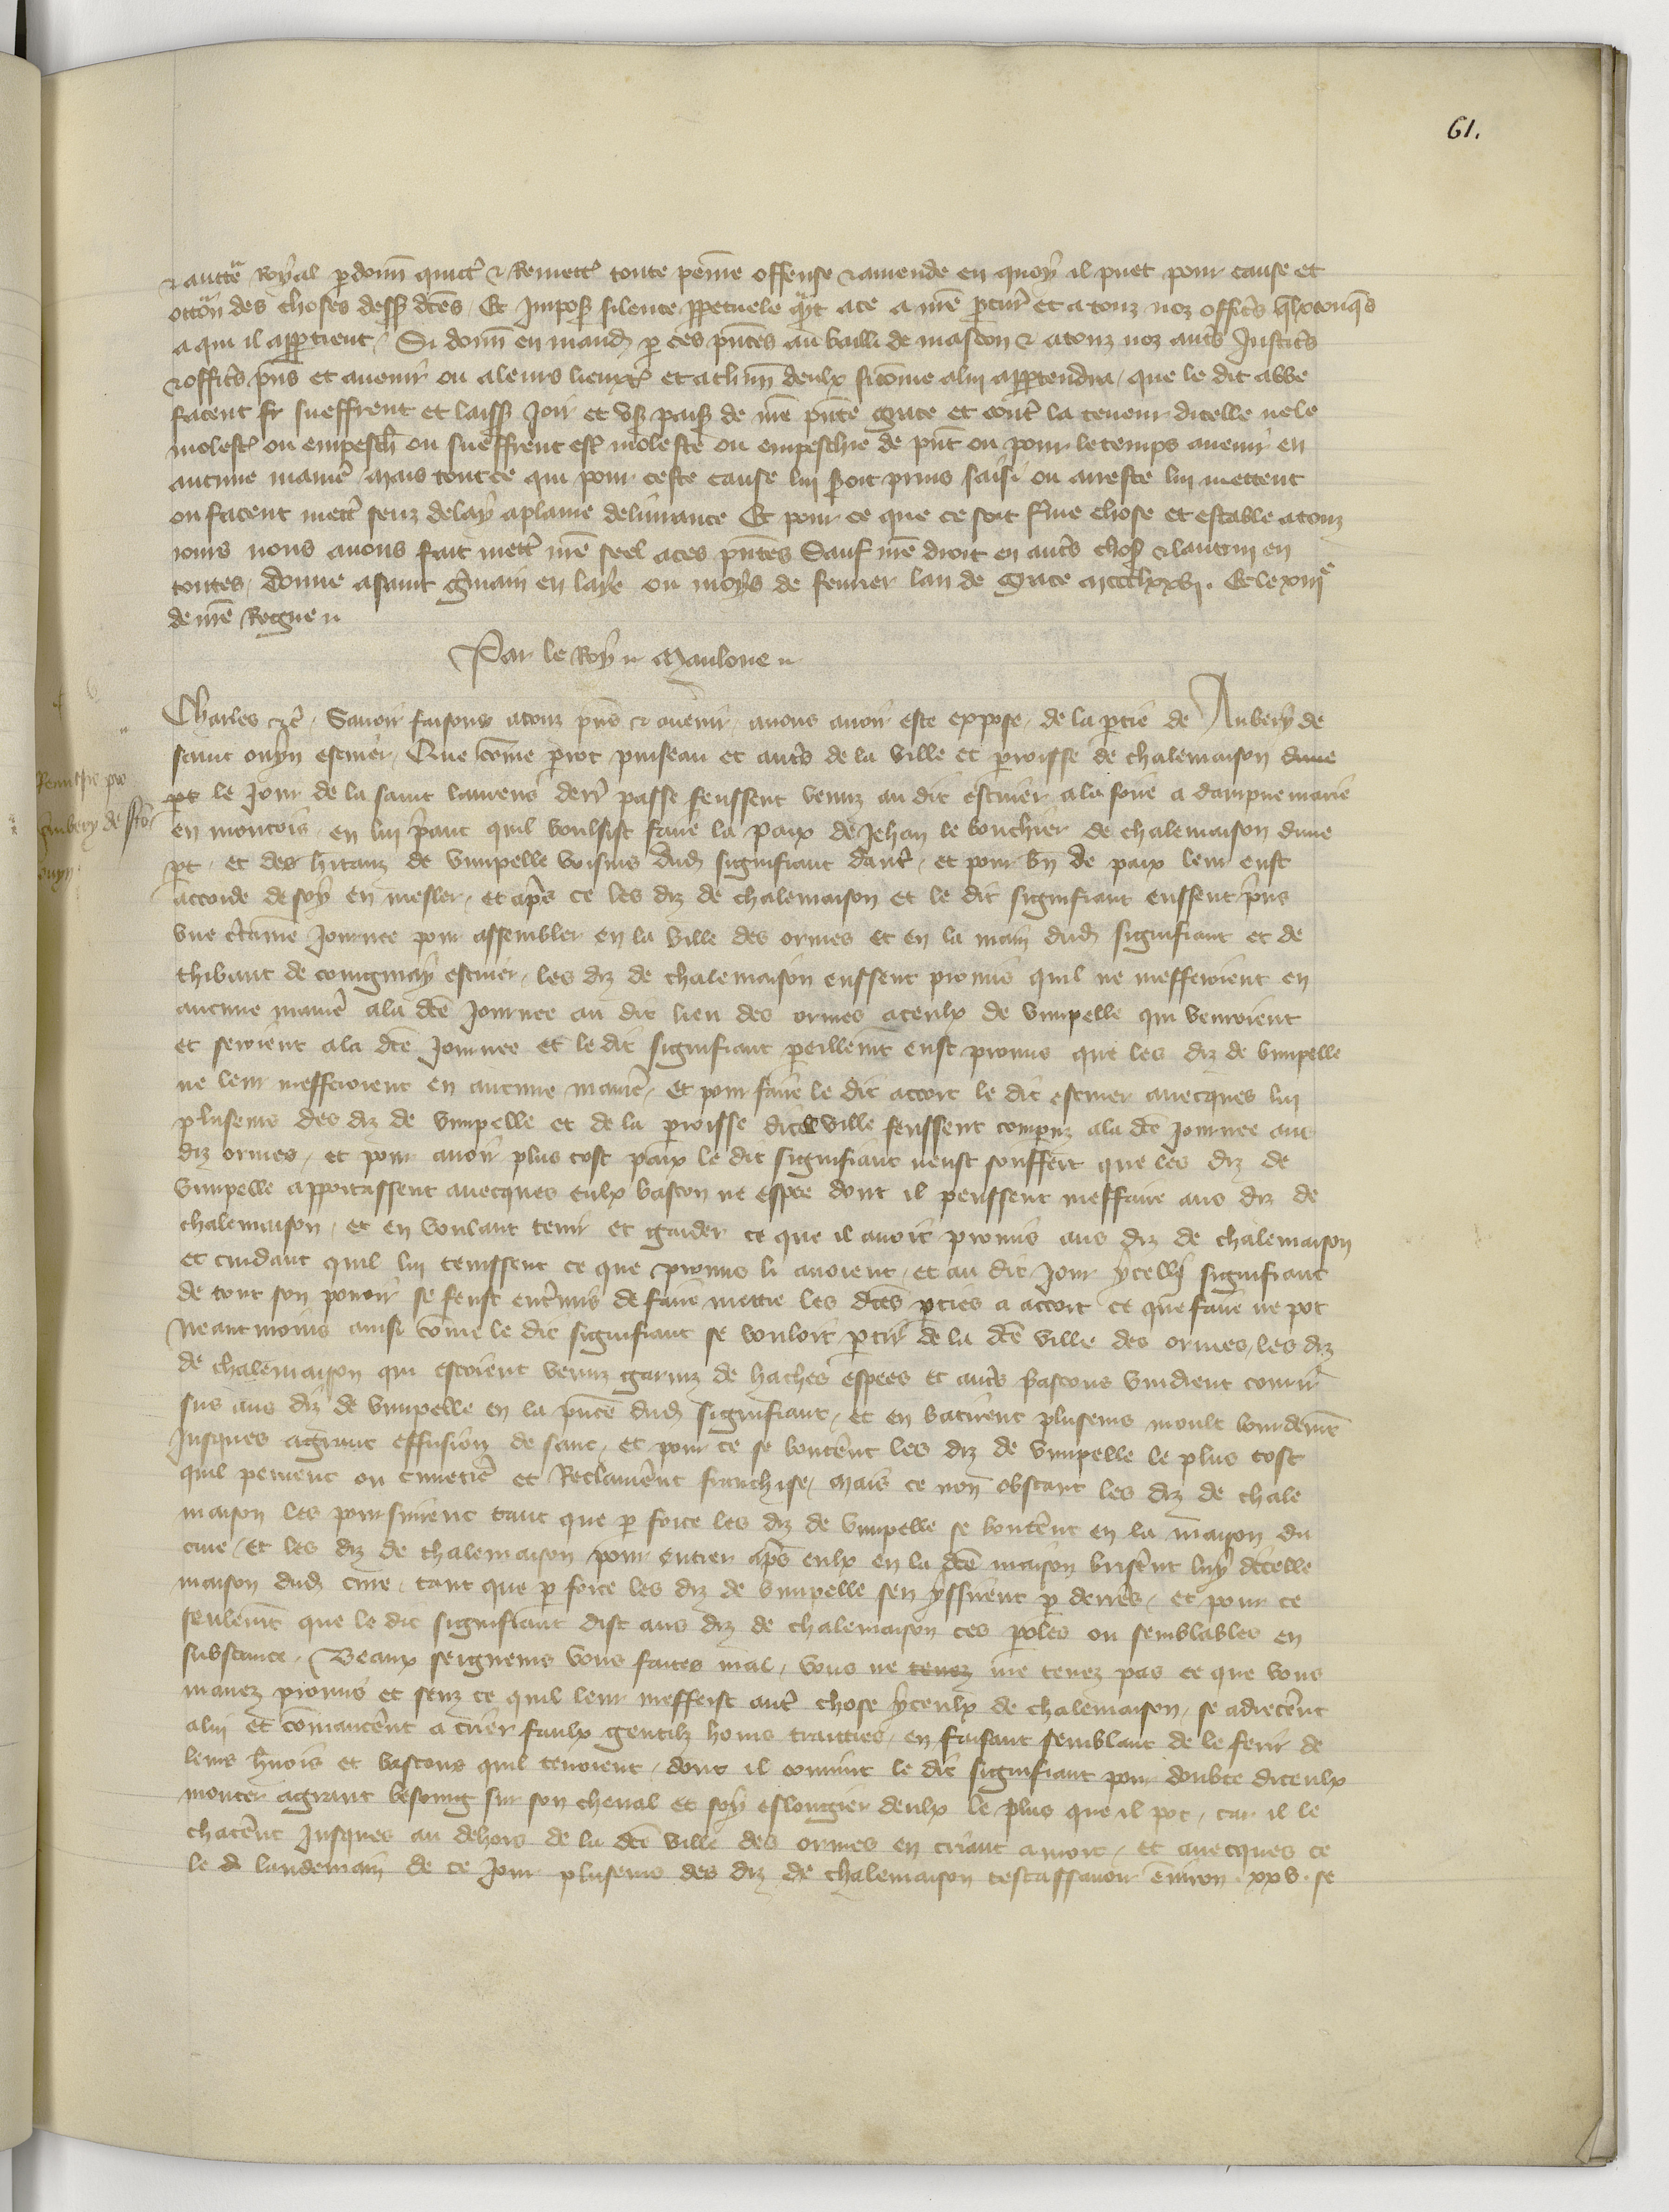 61.
& auctte Royal pdonn quict & Remett toute peine offense & amende en quoy il puet pour cause et
occon des choses dess dces Et Impos silence ppetuele qnt ace a nre pcur et a touz noz offics qlxconqs
a qui il appctient Si donn en mand p ces pntes au bailli de mascon & atouz noz auts Justics
& offics pns et avenir ou aleurs lieux et achun deulx sicome alui apptendra que le dit abbe
facent fr sueffrent et laiss Joir et us paisb de nre pnte grace et cont la teneur dicelle ne le
molest ou empesch ou sueffrent est moleste ou empeschie de pnt ou pour le temps avenir en
aucune manie Mais tout ce qui pour ceste cause lui seroit prins saisi ou arreste lui mettent
ou facent mett senz delay aplaine delivrance Et pour ce que ce soit ferme chose et estable atouz
iours nous avons fait mett nre seel aces pntes Sauf nre droit en auts chos & lautruy en
toutes donne asaint gmain en laye ou moys de fevrier lan de grace mccclxxvii. Et le xiiii e
de nre Regne
Par le Roy Manloue
Charles &c Savoir faisons atouz pns & avenir anous avoir este expose de la ptie de Aubery de
saint ouyn escuier Que come prot puiseau et auts de la ville et proisse de chalemaison dune
pt le Jour de la saint laurens derr passe feussent venuz au dit escuier ala foire a dampnemarie
en montois en lui priant quil voulsist faire la paix de Jehan le bouchier de chalemaison dune
pt et des hitanz de vimpelle voisins dud signifiant dautre et pour bn de paix leur eust
accorde de soy en mesler et apres ce les diz de chalemaison et le dit signifiant eussent prins
une ctaine Journee pour assembler en la ville des ormes et en la main dud signifiant et de
thibaut de couigmay escuier les diz de chalemaison eussent promis quil ne mefferoient en
aucune manie ala dce Journee au dit lieu des ormes aceulx de vimpelle qui venroient
et seroient ala dce Journee et le dit signifiant peillemt eust promis que les diz de vimpelle
ne leur mefferoient en aucune manie et pour faire le dit accort le dit escuier avecques lui
pluseurs des diz de vimpelle et de la proisse dicelle ville feussent compuz ala dce Journee aus
diz ormes et pour avoir plus tost paix le dit signifiant neust souffert que les diz de
vimpelle apportassent avecques eulx baston ne espee dont il peussent meffaire aus diz de
chalemaison et en voulant tenir et garder ce que il avoit promis aus diz de chalemaison
et cuidant quil lui tenissent ce que promis li avoient et au dit Jour ycellui signifiant
de tout son povoir se feust entmis de faire mettre les dces pties a accort ce que faire ne pot
Neantmoins ainsi come le dit signifiant se vouloit ptir de la dce ville des ormes les diz
de chalemaison qui estoient venuz garniz de haches espees et auts bastons vindrent courir
sus aus diz de vimpelle en la pnce dud signifiant et en batirent pluseurs moult lourdemt
Jusques agrant effusion de sanc et pour ce se boutrent les diz de vimpelle le plus tost
quil peurent ou cimetire et Reclamrent franchise mais ce non obstant les diz de chale
maison les poursuirent tant que p force les diz de vimpelle se boutrent en la maison du
cure et les diz de chalemaison pour entrer aps eulx en la dce maison brisrent luys dicelle
maison dud cure tant que p force les diz de vimpelle sen yssirent p derres et pour ce
seulemt que le dit signifiant dist aus diz de chalemaison ces poles ou semblables en
substance Beaux seigneurs vous faites mal vous ne tenez me tenez pas ce que vous
mavez promis et senz ce quil leur mesfeist aut chose yceulx de chalemaison se adrecrent
alui et comancrent a crier faulx gentilz homs traittres en faisant semblant de le ferir de
leurs hnois et bastons quil tenoient dont il convint le dit signifiant pour doubte diceulx
monter agrant besoing sur son cheval et soy eslongier deulx le plus que il pot car il le
chacrent Jusques au dehors de la dce ville des ormes en criant amort et avecques ce
le d landemain de ce Jour pluseurs des diz de chalemaison cestassavoir environ xxv se
Aubery de st
ouyn